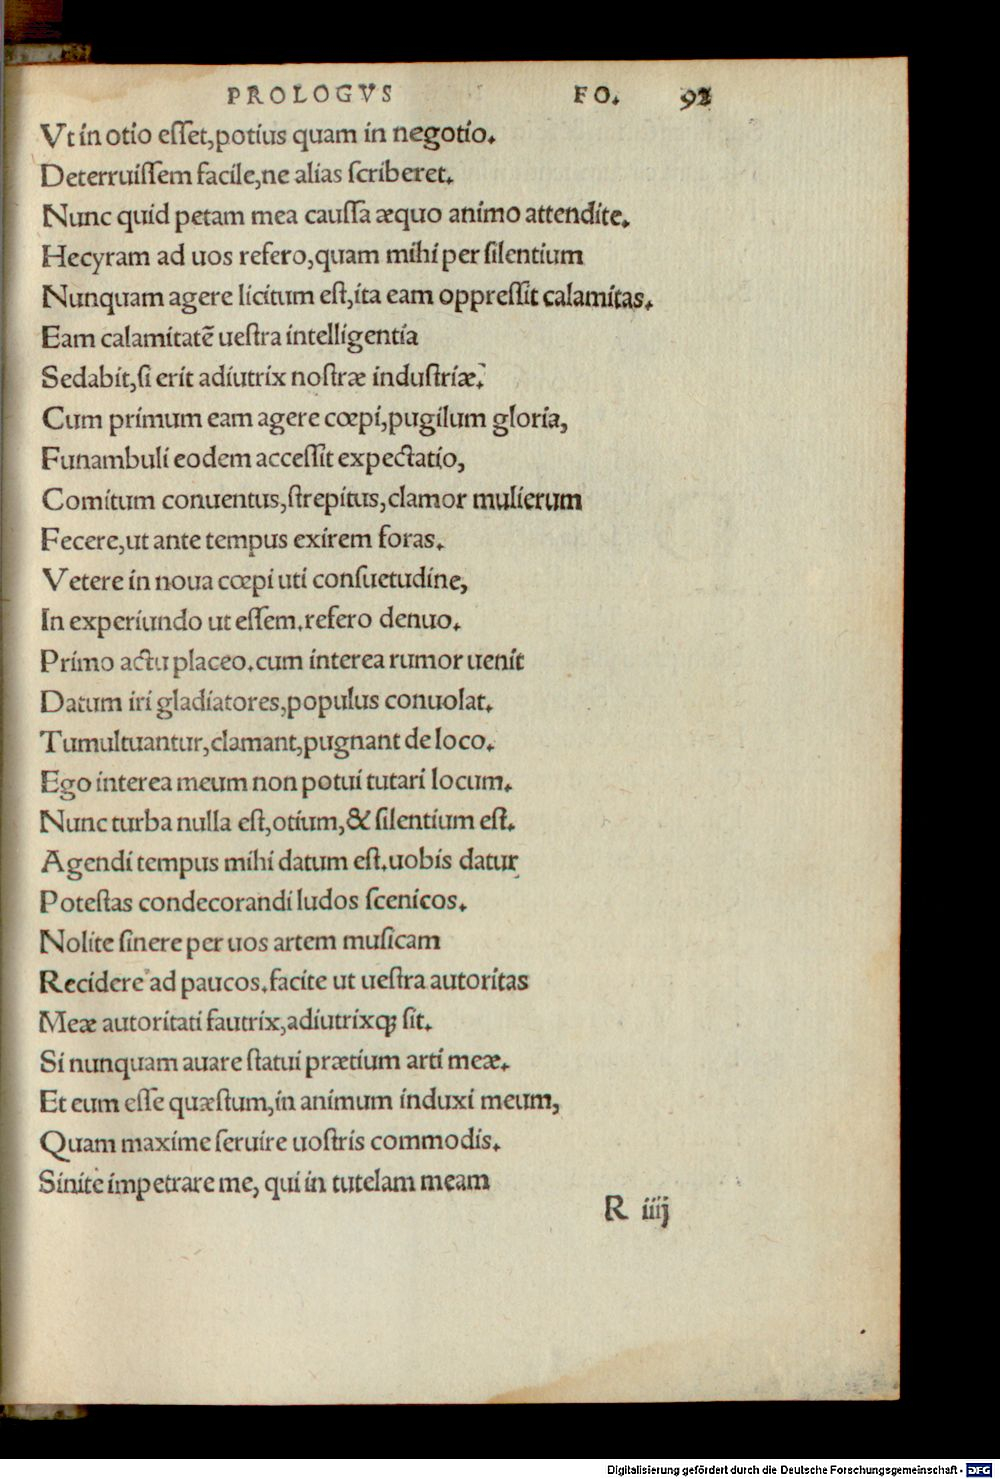 PROLOGVS FO. 92
Vt in otio eſſet,potius quam in negotio.
Deterruiſſem facile,ne alias ſcriberet.
Nunc quid petam mea cauſſa æquo animo attendite.
Hecyram ad uos refero,quam mihi per ſilentium
Nunquam agere licitum eſt,ita eam oppreſſit calamitas.
Eam calamitatē ueſtra intelligentia
Sedabit,ſi erit adiutrix noſtræ induſtriæ.
Cum primum eam agere cœpi,pugilum gloria,
Funambuli eodem acceſſit expectatio,
Comitum conuentus,ſtrepitus,clamor mulierum
Fecere,ut ante tempus exirem foras.
Vetere in noua cœpi uti conſuetudine,
In experiundo ut eſſem.refero denuo.
Primo actu placeo.cum interea rumor uenit
Datum iri gladiatores,populus conuolat.
Tumultuantur,clamant,pugnant de loco.
Ego interea meum non potui tutari locum.
Nunc turba nulla eſt,otium,& ſilentium eſt.
Agendi tempus mihi datum eſt.uobis datur
Poteſtas condecorandi ludos ſcenicos.
Nolite ſinere per uos artem muſicam
Recidere ad paucos.facite ut ueſtra autoritas
Meæ autoritati fautrix,adiutrixq; ſit.
Si nunquam auare ſtatui prætium arti meæ.
Et eum eſſe quæſtum,in animum induxi meum,
Quam maxime ſeruire uoſtris commodis.
Sinite impetrare me, qui in tutelam meam
R iiij
Digitalisierung gefördert durch die Deutsche Forschungsgemeinschaft - DFG